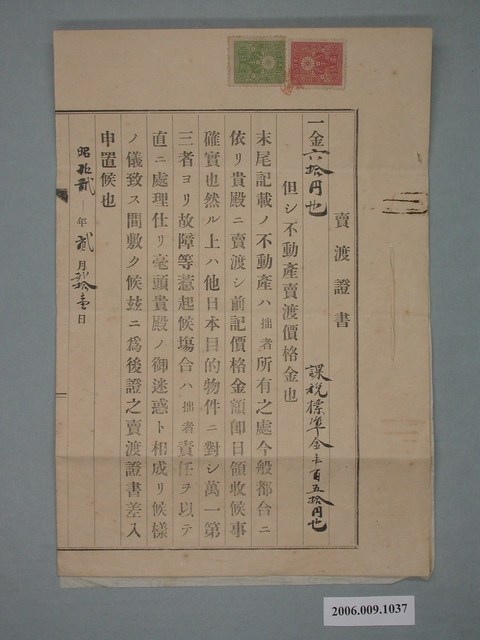 賣渡證書
一金六拾円也 課税標準金壹百五拾円也
但シ不動產賣渡價格金也
末尾記載ノ不動產ハ拙者所有之處今般都合ニ
依リ貴殿ニ賣渡シ前記價格金額卽日領收候事
確實也然ル上ハ他日本目的物件ニ對シ萬一第
三者ヨリ故障等惹起候塲合ハ拙者責任ヲ以テ
直ニ處理仕リ毫頭貴殿ノ御迷惑ト相成リ候樣
ノ儀致ス間敷ク候玆ニ爲後證之賣渡證書差入
申置候也
昭和貳年貳月貳拾壹日
2006.009.1037